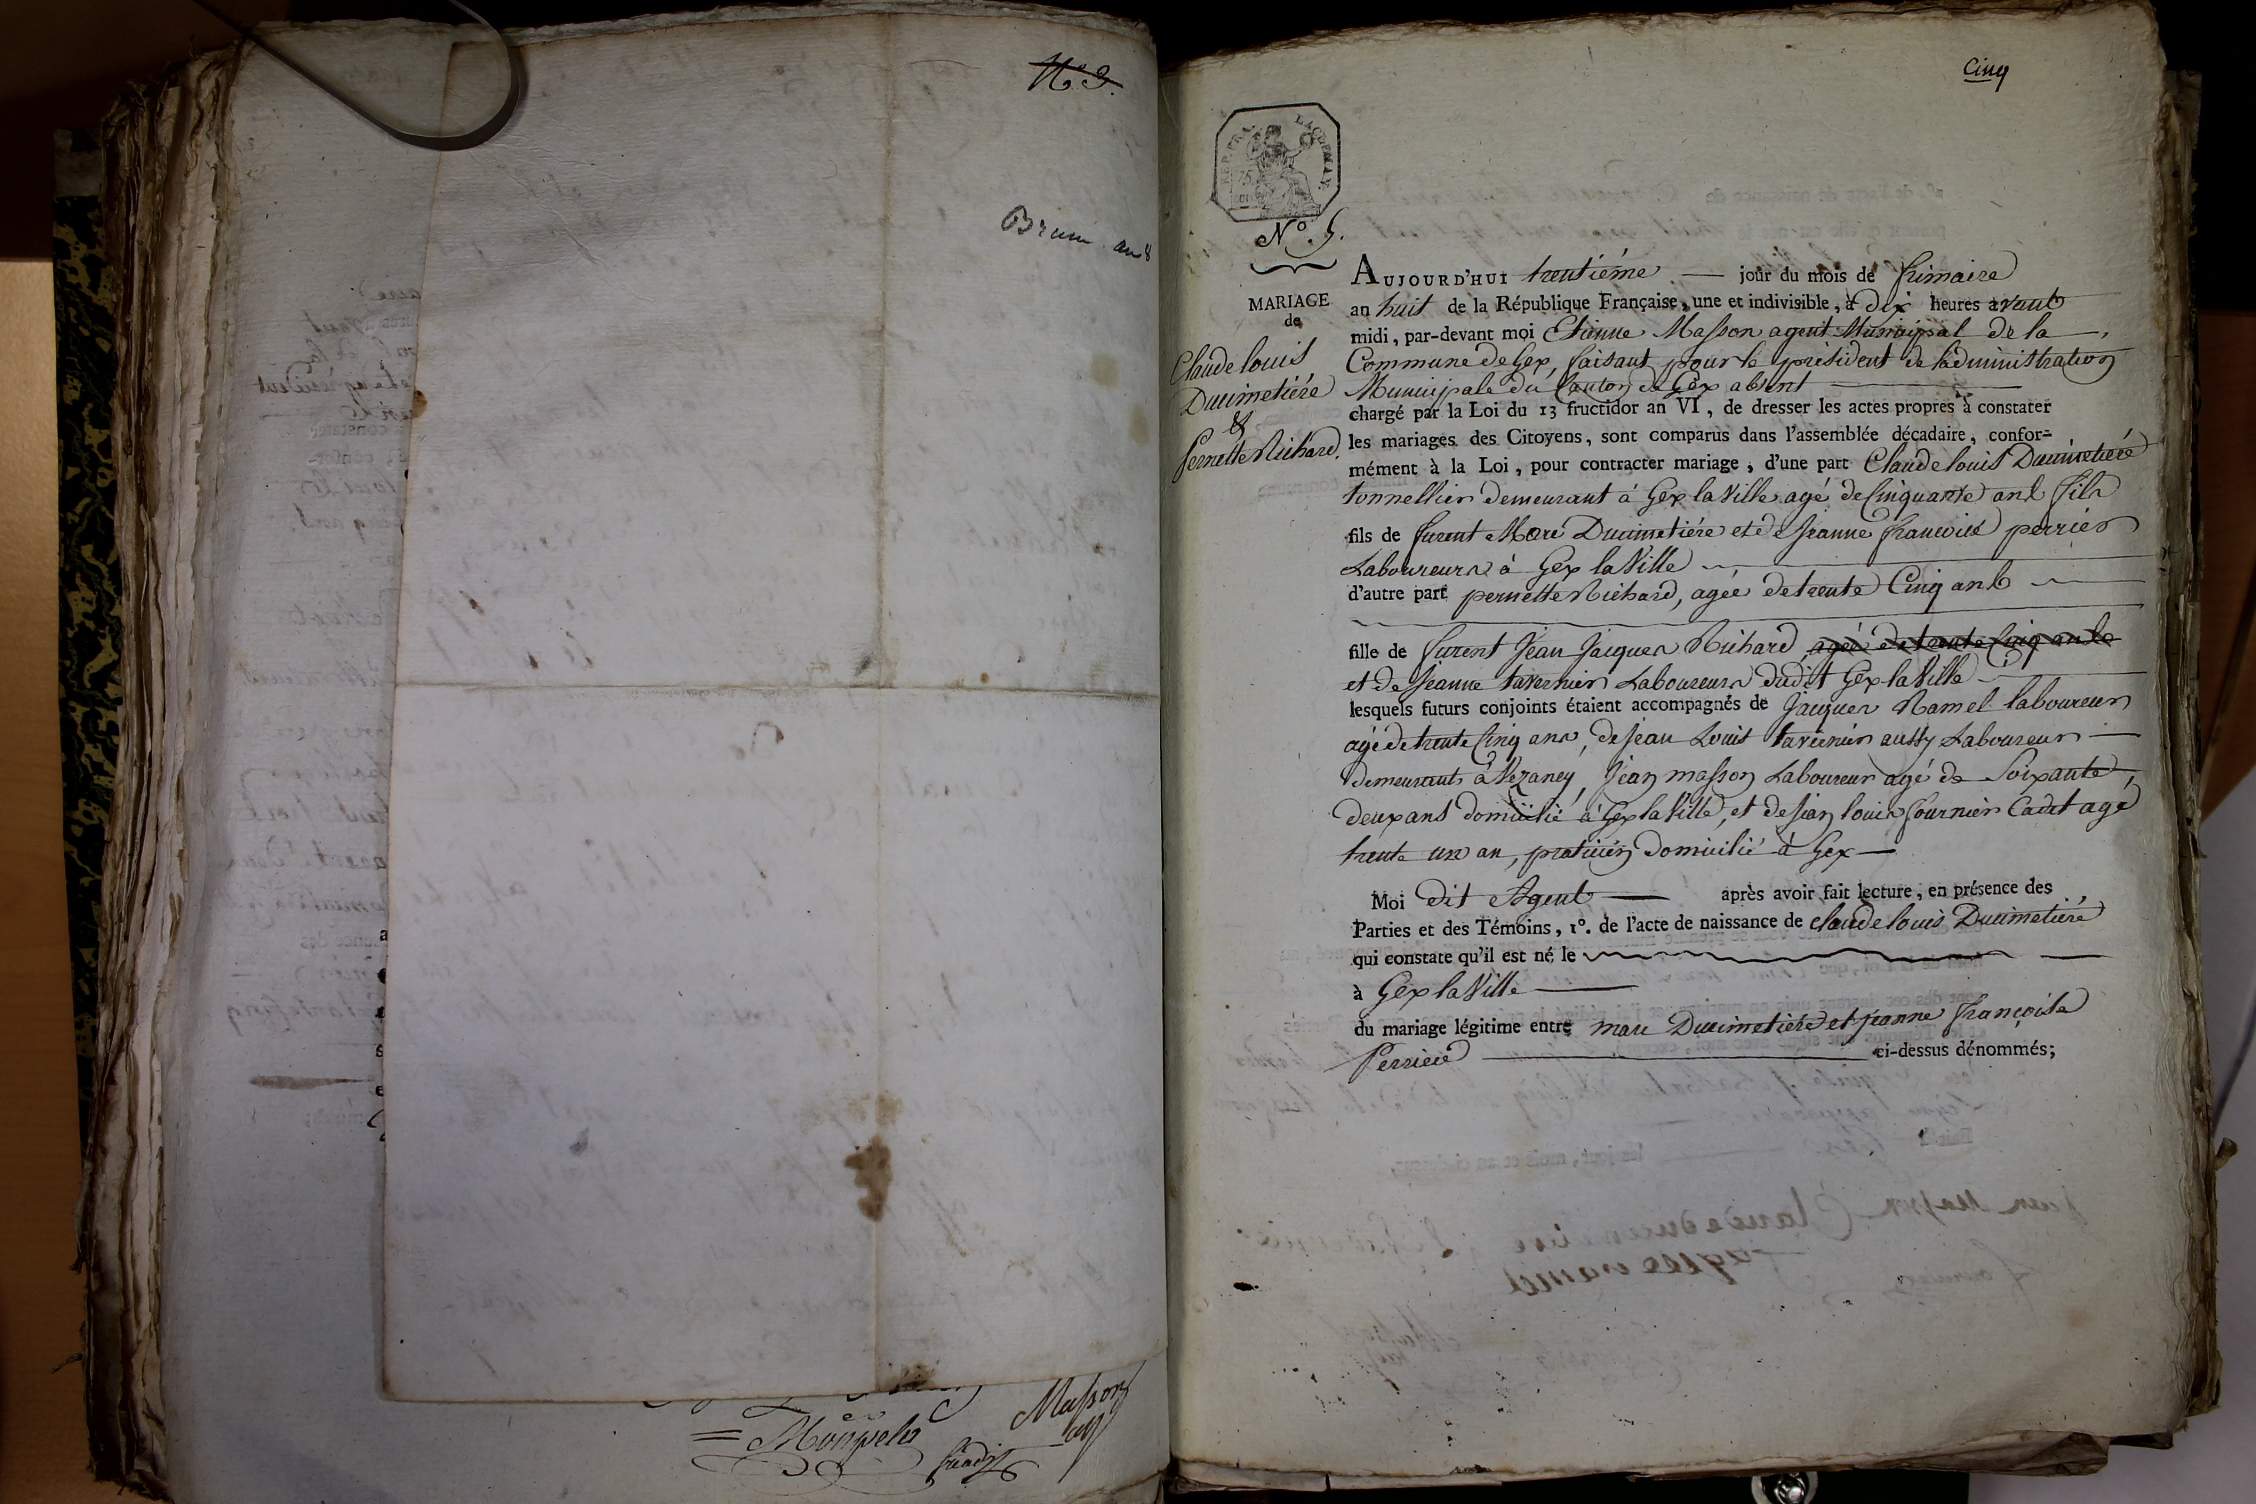 N.º 3.
Brum. an 8
Masson
agt
Cinq
REP. FRA.
75
N.º 5.
MARIAGE
de
Claude louis
Ducimetiére
&
Pernette Richard.
AUJOURD'HUI trentiéme — jour du mois de frimaire
an huit de la République Française, une et indivisible, à dix heures avant
midi, par-devant moi Etienne Masson agent Municipal de la
Commune de Gex, faisant pour le président de l'administration
Municipale du Canton de Gex absent
chargé par la Loi du 13 fructidor an VI, de dresser les actes propres à constater
les mariages des Citoyens, sont comparus dans l'assemblée décadaire, confor=
mément à la Loi, pour contracter mariage, d'une part Claude louis Ducimetiéré
tonnellier demeurant à Gex la Ville agé de Cinquante ans fils
fils de furent Marc Ducimetiére et de Jeanne francoise perrier
Laboureurs à Gex la Ville
d'autre part pernette Richard, agée de trente Cinq ans
fille de furent Jean Jacques Richard agée de trente Cinq ans
et de Jeanne tavernier Laboureurs dudit Gex la Ville
lesquels futurs conjoints étaient accompagnés de Jacques Ramel laboureur
agé de trente Cinq ans, de Jean Louis tavernier aussy Laboureur
demeurants à Vezaney, Jean masson Laboureur agé de Soixante
deux ans domicilié à Gex la Ville, et de Jean louis fournier Cadet agé
trente un an, praticien domicilié à Gex
Moi dit Agent — après avoir fait lecture, en présence des
Parties et des Témoins, 1º. de l'acte de naissance de claude louis Ducimetiére
qui constate qu'il est né le
à Gex la Ville
du mariage légitime entre marc Ducimetiére et jeanne françoise
Perriere ci-dessus dénommés;